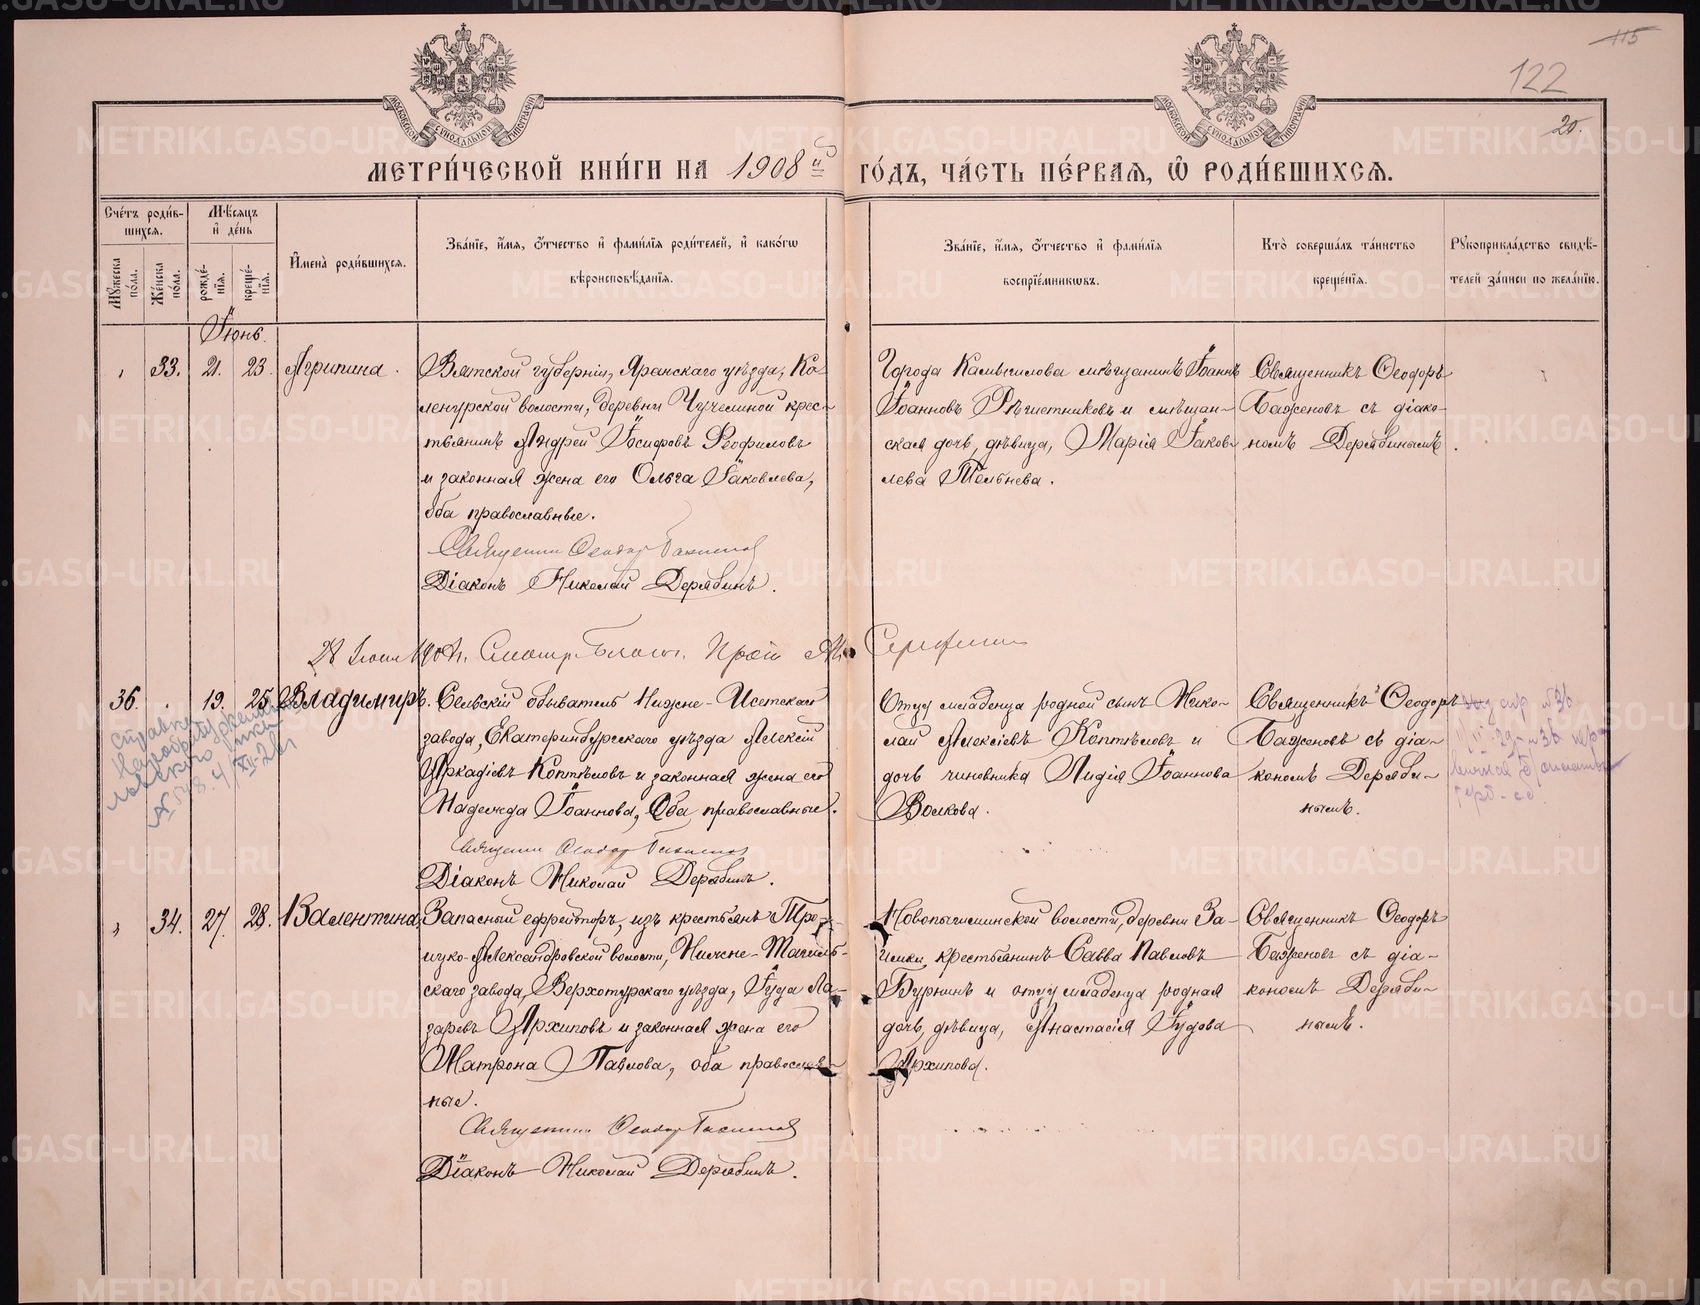 115
122
20.
МОСКОВСКОЙ СѴНОДАЛЬНОЙ ТИПОГРАФІИ
МОСКОВСКОЙ СѴНОДАЛЬНОЙ ТИПОГРАФІИ
МЕТРИ́ЧЕСКОЙ КНИ́ГИ НА 1908й ГО́ДЪ, ЧА́СТЬ ПЕ́РВАѦ, Ѽ РОДИ́ВШИХСѦ.
Сче́тъ роди́в-
шихсѧ.
Мꙋ́жеска по́ла.
Же́нска по́ла.
Мѣ́сѧцъ
и҆ де́нь
рожде́-
нїѧ.
креще́-
нїѧ.
И҆мена̀ роди́вшихсѧ.
Зва́нїе, и҆́мѧ, ѻ҆́тчество и҆ фами́лїѧ роди́телей, и҆ како́гѡ
вѣроисповѣ́данїѧ.
Зва́нїе, и҆́мѧ, ѻ҆́тчество и҆ фами́лїѧ
воспрїе́мникѡвъ.
Кто̀ соверша́лъ та́инство
креще́нїѧ.
Рꙋкоприкла́дство свидѣ́-
телей за́писи по жела́нїю.
Іюнь.
33. 21. 23. Агрипина.
Вятской губерніи, Яранскаго уѣзда, Ко-
ленурской волости, деревни Чучелиной крес-
тьянинъ Андрей Іосифовъ Ѳеофиловъ
и законная жена его Ольга Іаковлева,
оба православные.
Священникъ Ѳеодоръ Баженовъ
Діаконъ Николай Дерябинъ.
Города Камышлова мѣщанинъ Іоаннъ
Іоанновъ Рѣшетниковъ и мѣщан-
ская дочь, дѣвица, Марія Іаков-
лева Тельнева.
Священникъ Ѳеодоръ
Баженовъ съ діако-
номъ Дерябинымъ.
28 Іюня 1908 г. Смотр. Благоч. Прот.
36. 19. 25. Владиміръ.
Сельскій обыватель Нижне-Исетскаго
завода, Екатеринбургскаго уѣзда Алексій
Аркадіевъ Коптѣловъ и законная жена его
Надежда Іоаннова, Оба православные.
Священникъ Ѳеодоръ Баженовъ
Діаконъ Николай Дерябинъ.
Отцу младенца родной сынъ Нико-
лай Алексіевъ Коптѣловъ и
дочь чиновника Лидія Іоаннова
Волкова.
Священникъ Ѳеодоръ
Баженовъ съ діа-
кономъ Деряби-
нымъ.
справка
№ 548.
№36
34. 27. 28. Валентина.
Запасный ефрейторъ, изъ крестьянъ Тро-
ицко-Александровской волости, Нижне-Тагиль-
скаго завода, Верхотурскаго уѣзда, Іуда Ла-
заревъ Архиповъ и законная жена его
Матрона Павлова, оба православ-
ные.
Священникъ Ѳеодоръ Баженовъ
Діаконъ Николай Дерябинъ.
Новопышминской волости, деревни За-
имки, крестьянинъ Савва Павловъ
Бурнинъ и отцу младенца родная
дочь, дѣвица, Анастасія Іудова
Архипова.
Священникъ Ѳеодоръ
Баженовъ съ діа-
кономъ Деряби-
нымъ.
METRIKI.GASO-URAL.RU